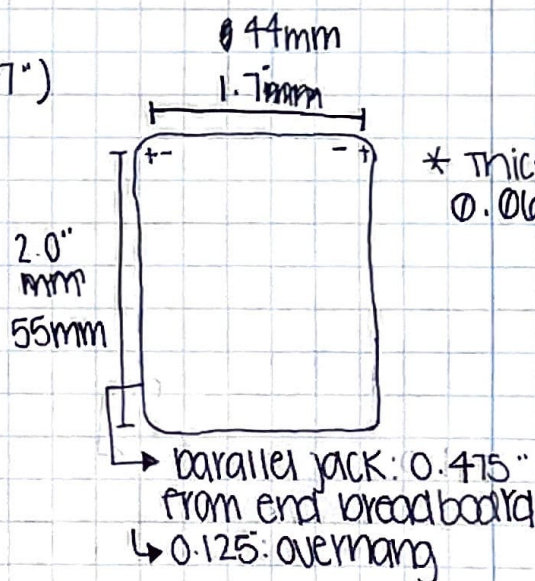 44mm
7")
1.7
+- - +
* Thic
0.06
2.0"
mm
55mm
parallel jack: 0.475"
from end breadboard
↳ 0.125: overhang